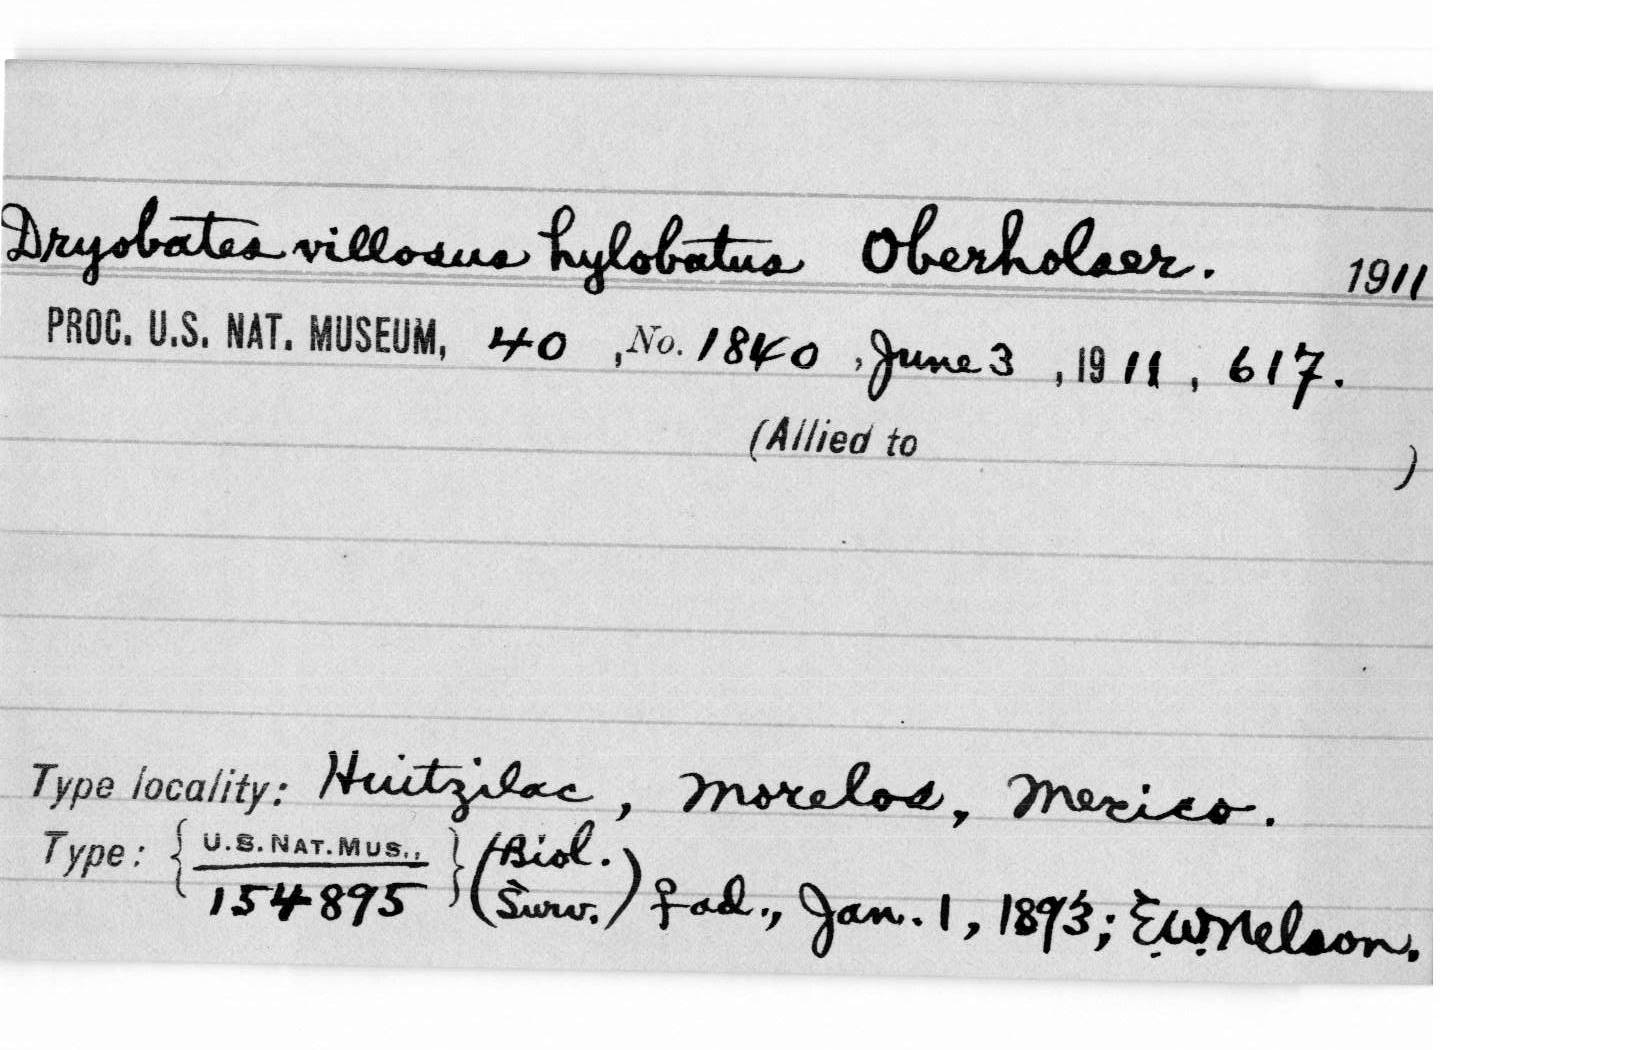 Dryobates villosus hylobatus Oberholser. 1911
PROC. U.S. NAT. MUSEUM, 40, No. 1840, June 3, 1911, 617.
(Allied to )
Type locality: Huitzilac, Morelos, Mexico.
Type: { U.S. NAT. MUS., 154895 } (Biol. Surv.) ♀ ad., Jan. 1, 1893; E.W. Nelson.